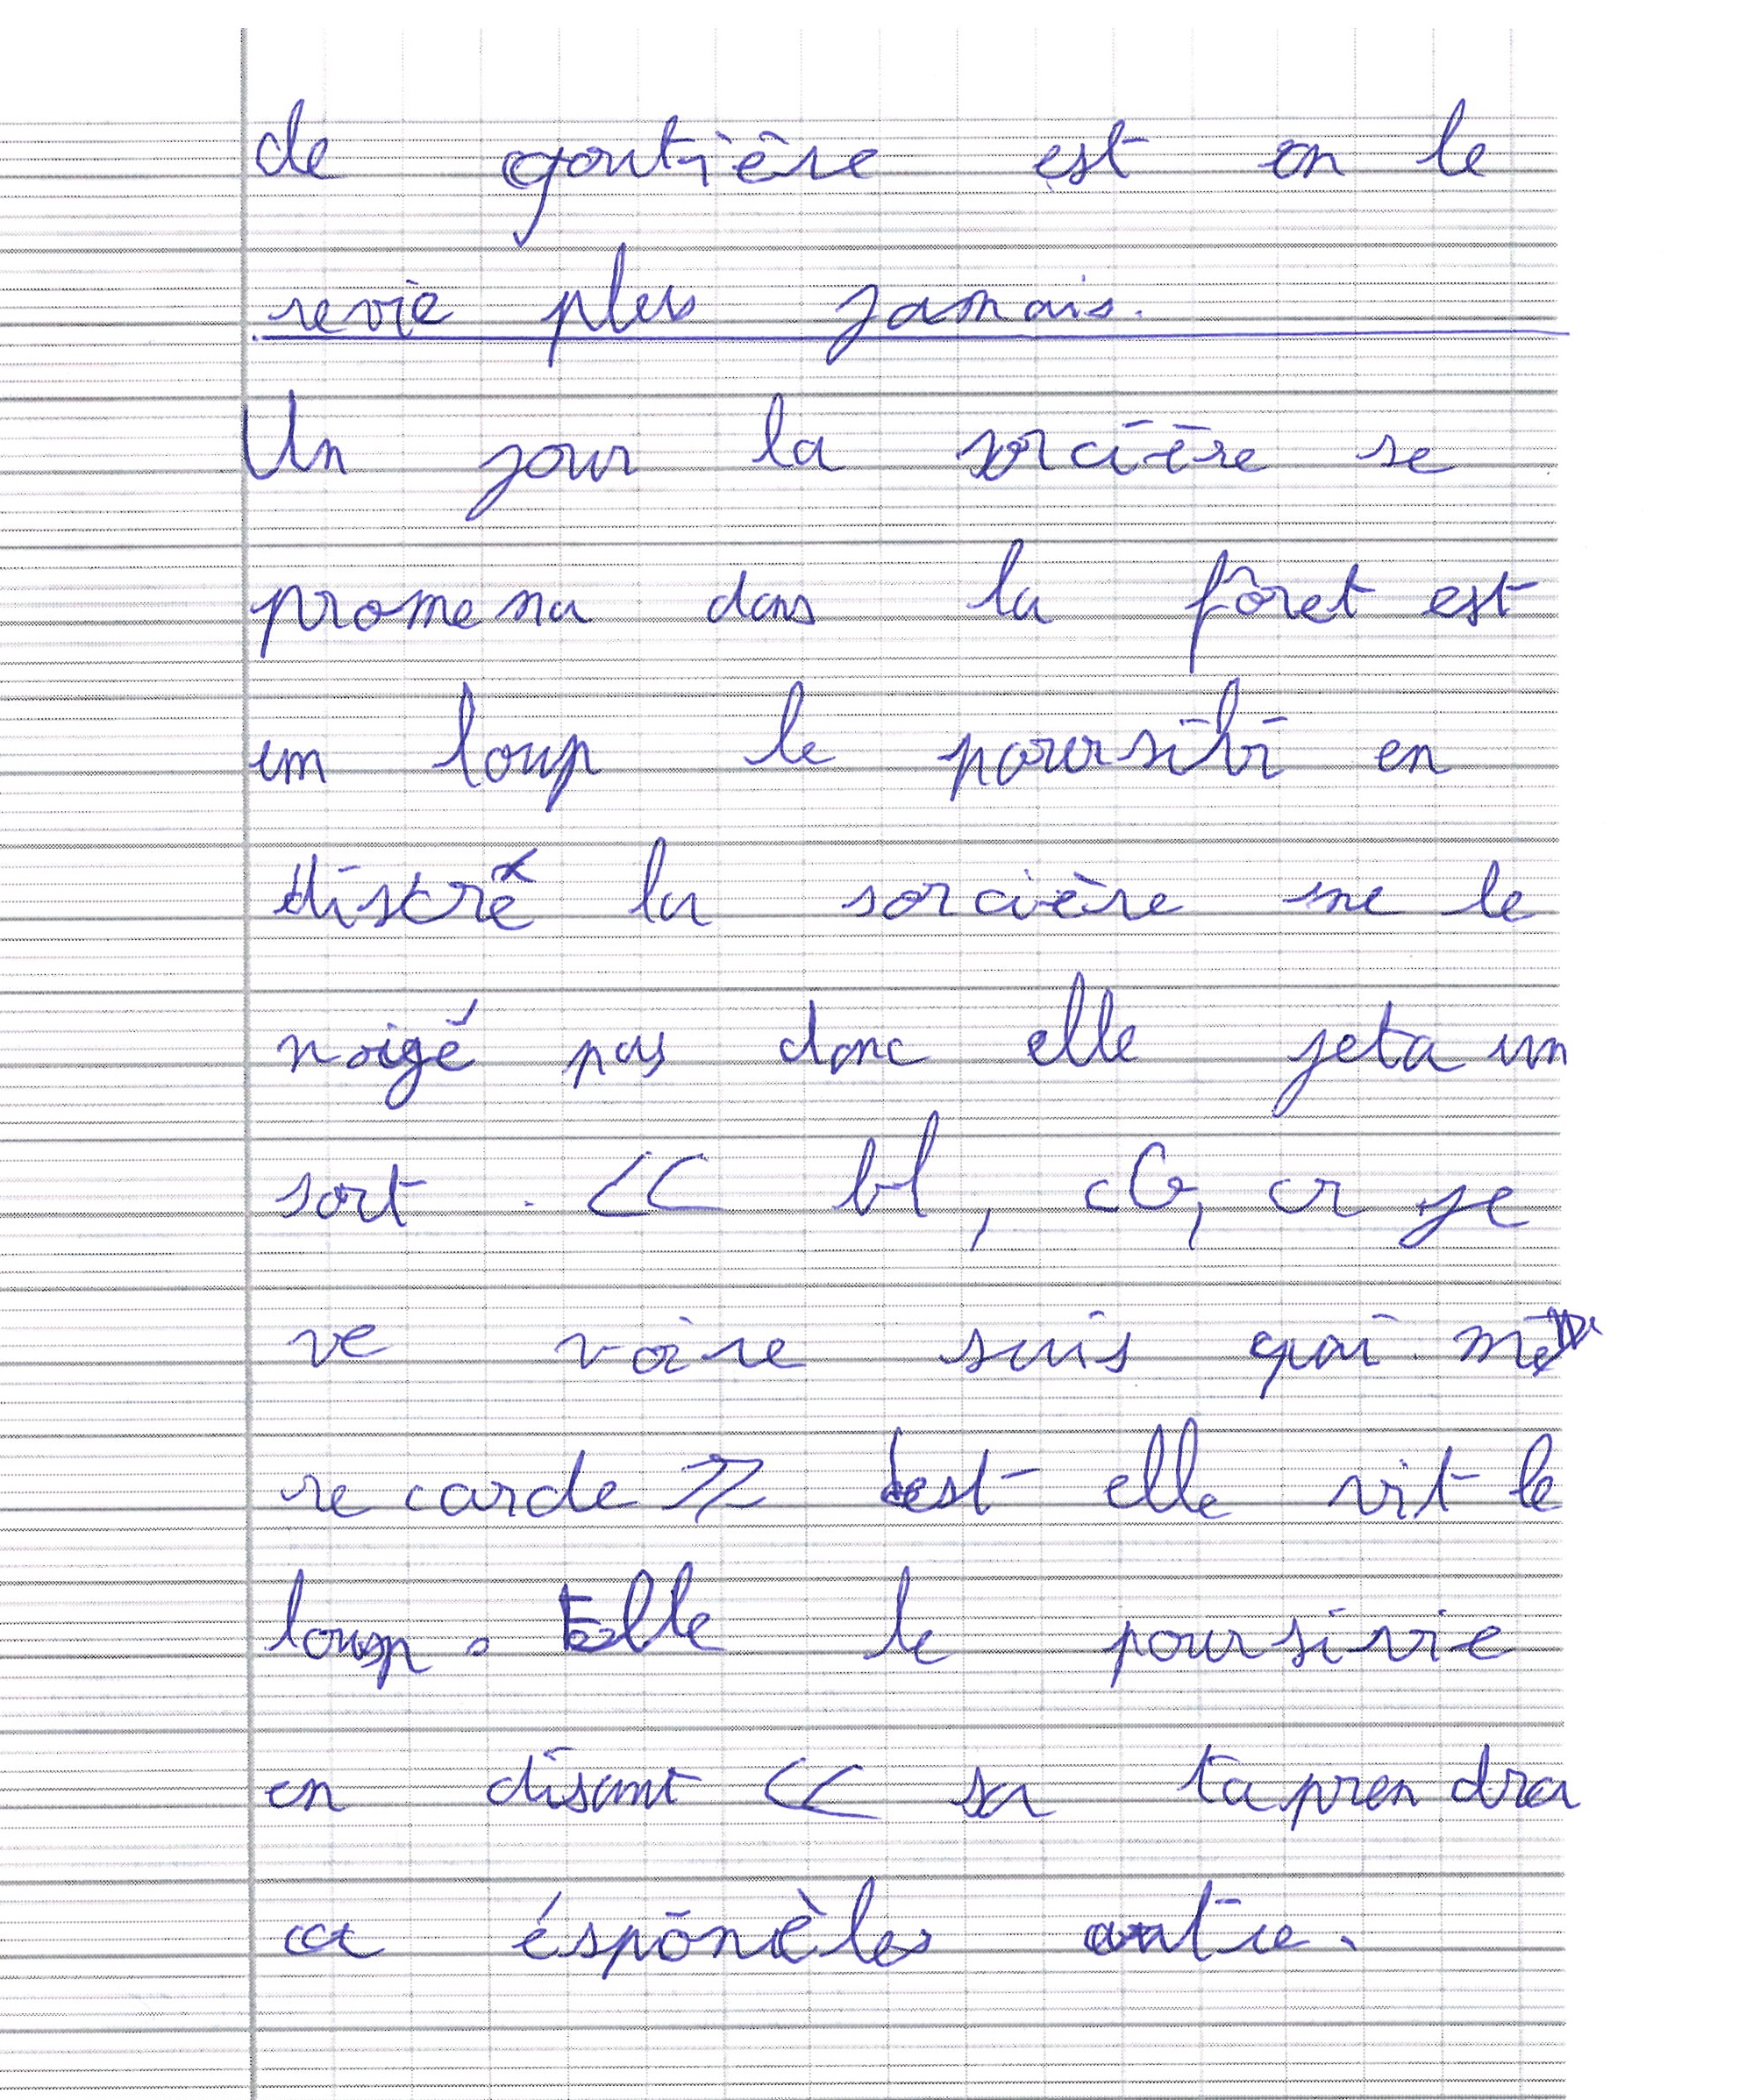 de goutière est on le
revie plus jamais.
Un jour la sorcière se
promena dans la fôret est
un loup le poursibi en
distré la sorcière ne le
noigé pas donc elle jeta un
sort. << bl, cG, cr je
ve voire suis qoi me
re carde >> est elle vit le
loup. Elle le poursivie
en disant << sa ta pren dra
a éspónèles autre.